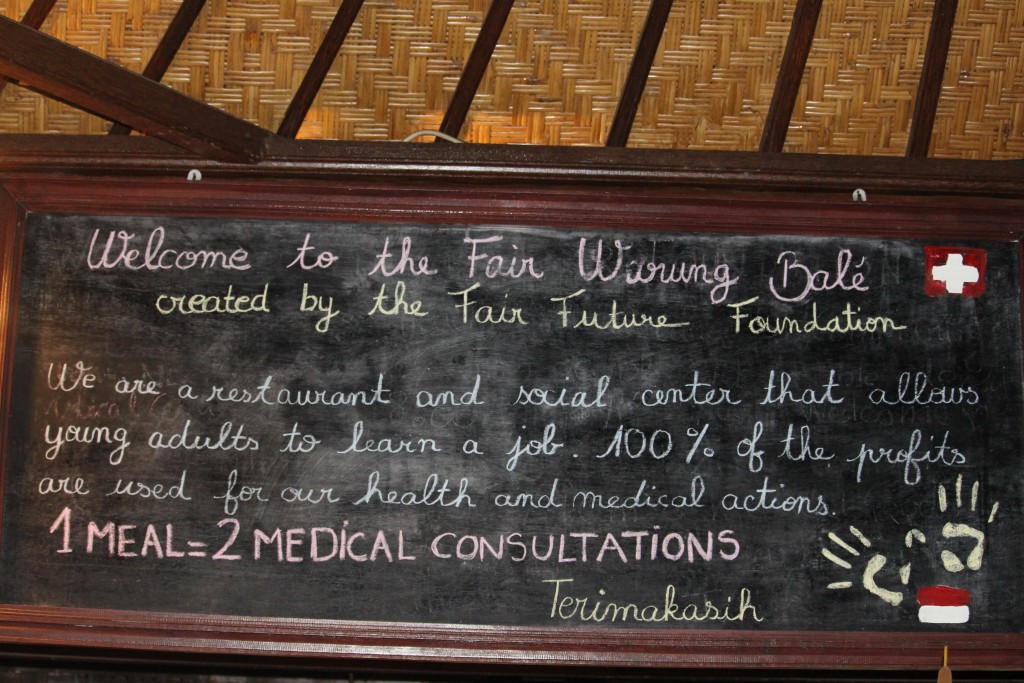 Welcome to the Fair Warung Balé
created by the Fair Future Foundation
We are a restaurant and social center that allows
young adults to learn a job. 100% of the profits
are used for our health and medical actions.
1 MEAL = 2 MEDICAL CONSULTATIONS
Terimakasih